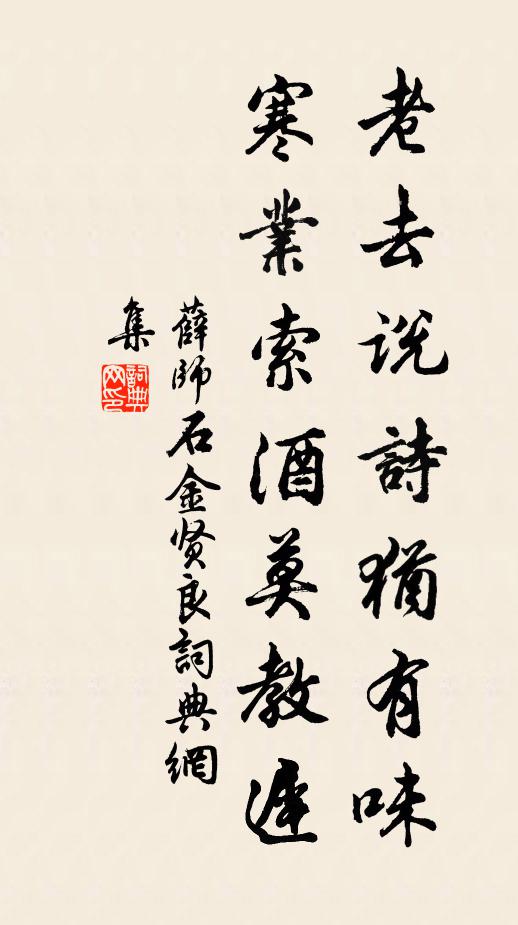 老去説詩猶有味
寒業索酒莫教遲
薛師石金賢良詞典網
集
詞典网印